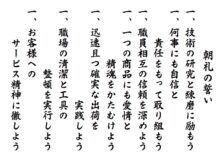 朝礼の誓い
一、技術の研究と練磨に励もう
一、何事にも自信と
責任をもって取り組もう
一、職員相互の信頼を深めよう
一、一つの商品にも愛情と
精魂をかたむけよう
一、迅速且つ確実な出荷を
実践しよう
一、職場の清潔と工具の
整頓を実行しよう
一、お客様への
サービス精神に徹しよう